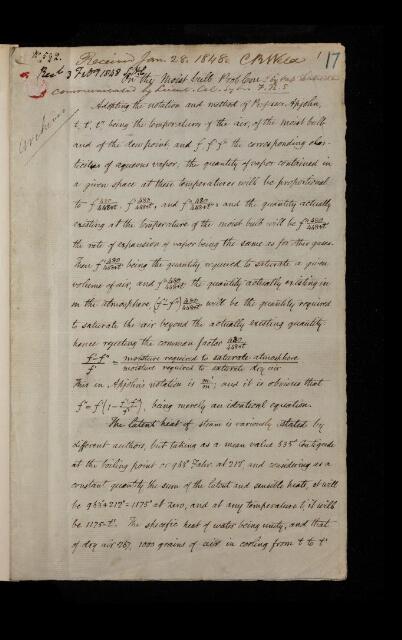 Received Jan. 28. 1848. C R Weld
17
Read 3 Feb 1848
On the Moist bulb Problem by Cap.
communicated by Lieut. Col. Sykes F.R.S
Archives
Adopting the notation and method of Professor Apjohn,
t, t', t'' being the temperatures of the air, of the moist bulb
and of the dewpoint and f, f', f'' the corresponding elas-
ticities of aqueous vapor; the quantity of vapor contained in
a given space at these temperatures will be proportional
to f 480/448+t, f' 480/448+t', and f'' 480/448+t'', and the quantity actually
existing at the temperature of the moist bulb will be f'' 480/448+t'
the rate of expansion of vapor being the same as for other gases.
Then f' 480/448+t' being the quantity required to saturate a given
volume of air, and f'' 480/448+t' the quantity actually existing in
in the atmosphere, (f'-f'') 480/448+t' will be the quantity required
to saturate the air beyond the actually existing quantity
hence rejecting the common factor 480/448+t'
f'-f''/f' = moisture required to saturate atmosphere/moisture required to saturate dry air
This in Apjohn's notation is m'/m; and it is obvious that
f''=f'(1-f'-f''/f'), being merely an identical equation.
The latent heat of steam is variously stated by
different authors, but taking as a mean value 535° Centigrade
at the boiling point or 963° Fahr. at 212°, and considering as a
constant quantity the sum of the latent and sensible heats, it will
be 963+212=1175° at zero, and at any temperature t', it will
be 1175-t'. The specific heat of water being unity, and that
of dry air .267, 1000 grains of air in cooling from t to t'